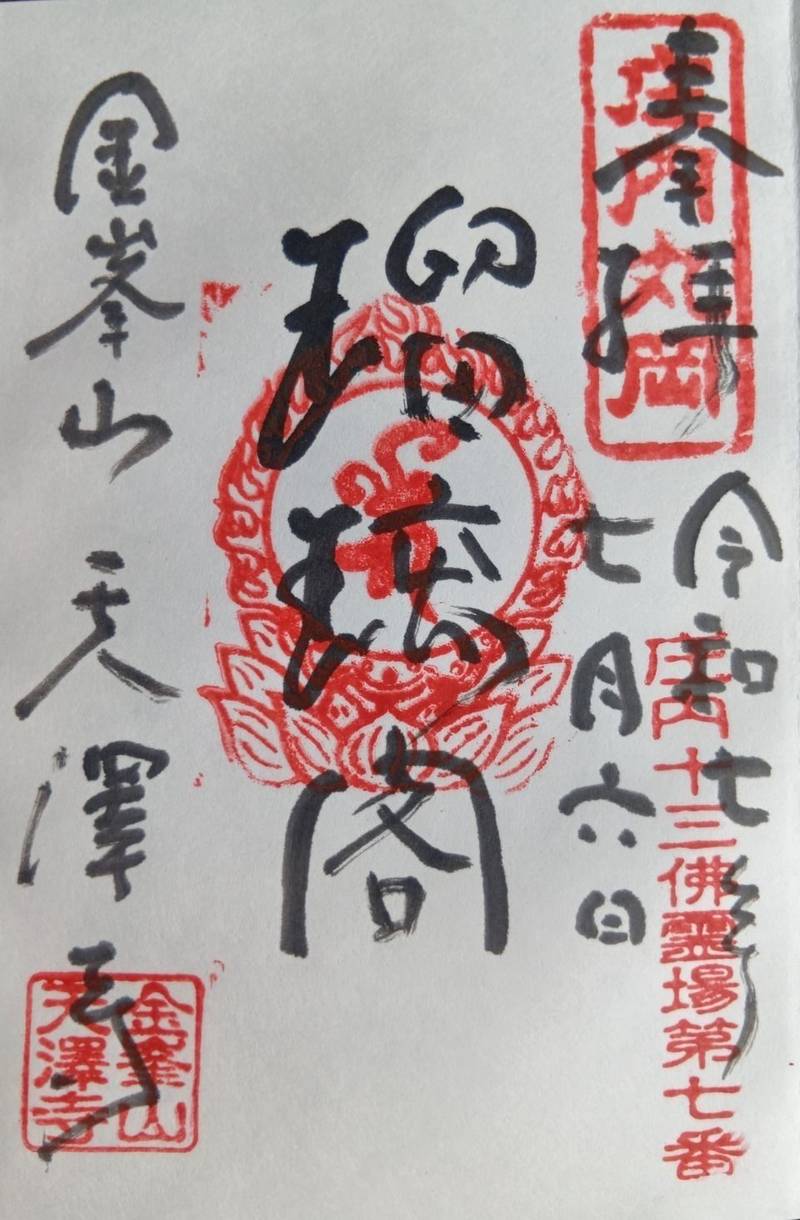 奉拝
庄内丸岡
令和七年
七月六日
庄内十三佛霊場第七番
瑠璃閣
金峯山 天澤寺
金峯山
天澤寺